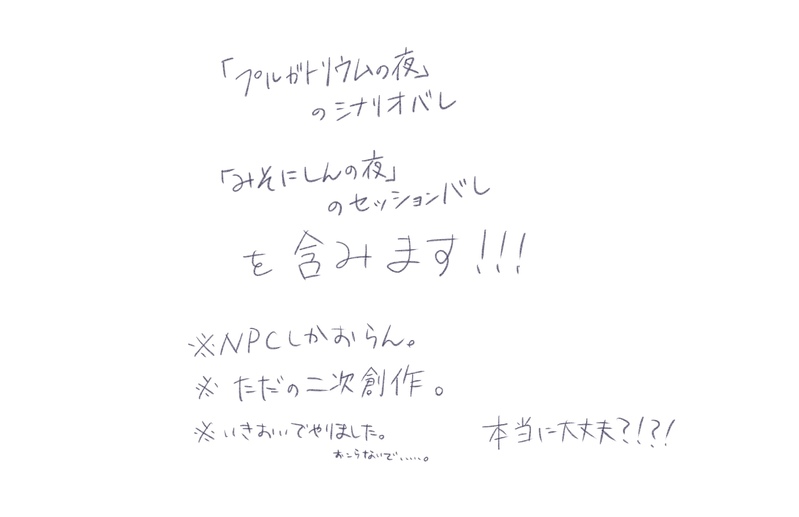 「プルガトリウムの夜」
のシナリオバレ
「みそにしんの夜」
のセッションバレ
を含みます!!!
※NPCしかおらん。
※ ただの二次創作。
※いきおいでやりました。
おこらないで.....。
本当に大丈夫?!?!